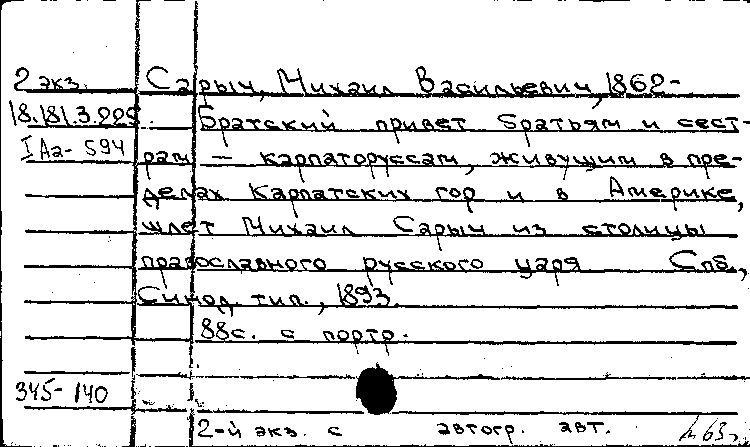 2 экз. Сарыч, Михаил Васильевич, 1862-
18.181.3.225. Братский привет братьям и сест-
I Аа- 594 рам – карпаторуссам, живущим в пре-
делах Карпатских гор и в Америке,
шлет Михаил Сарыч из столицы
православного русского царя Спб,
Синод. тип., 1893.
88с. с портр.
345-140
2-й экз. с автогр. авт.